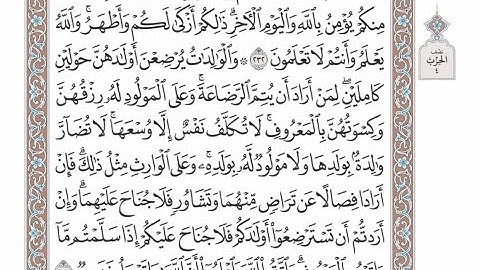 مِنكُمْ يُؤْمِنُ بِٱللَّهِ وَٱلْيَوْمِ ٱلْأَخِرِۗ ذَٰلِكُمْ أَزْكَىٰ لَكُمْ وَأَطْهَرُۚ وَٱللَّهُ
يَعْلَمُ وَأَنتُمْ لَا تَعْلَمُونَ ٢٣٢ ۞ وَٱلْوَٰلِدَٰتُ يُرْضِعْنَ أَوْلَٰدَهُنَّ حَوْلَيْنِ
كَامِلَيْنِۖ لِمَنْ أَرَادَ أَن يُتِمَّ ٱلرَّضَاعَةَۚ وَعَلَى ٱلْمَوْلُودِ لَهُۥ رِزْقُهُنَّ
وَكِسْوَتُهُنَّ بِٱلْمَعْرُوفِۚ لَا تُكَلَّفُ نَفْسٌ إِلَّا وُسْعَهَاۚ لَا تُضَآرَّ
وَٰلِدَةُۢ بِوَلَدِهَا وَلَا مَوْلُودٌ لَّهُۥ بِوَلَدِهِۦۚ وَعَلَى ٱلْوَارِثِ مِثْلُ ذَٰلِكَۗ فَإِنْ
أَرَادَا فِصَالًا عَن تَرَاضٍ مِّنْهُمَا وَتَشَاوُرٍ فَلَا جُنَاحَ عَلَيْهِمَاۗ وَإِنْ
أَرَدتُّمْ أَن تَسْتَرْضِعُوٓا۟ أَوْلَٰدَكُمْ فَلَا جُنَاحَ عَلَيْكُمْ إِذَا سَلَّمْتُم مَّآ
نصف
الحزب
٤